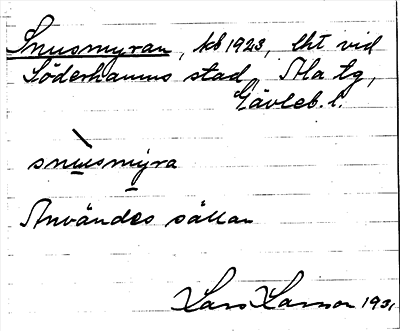 Snusmyran, kb 1923, lht vid
Söderhamns stad, Ala tg,
Gävleb. l.
snusmỳra
Användes sällan
Lars Larson 1931